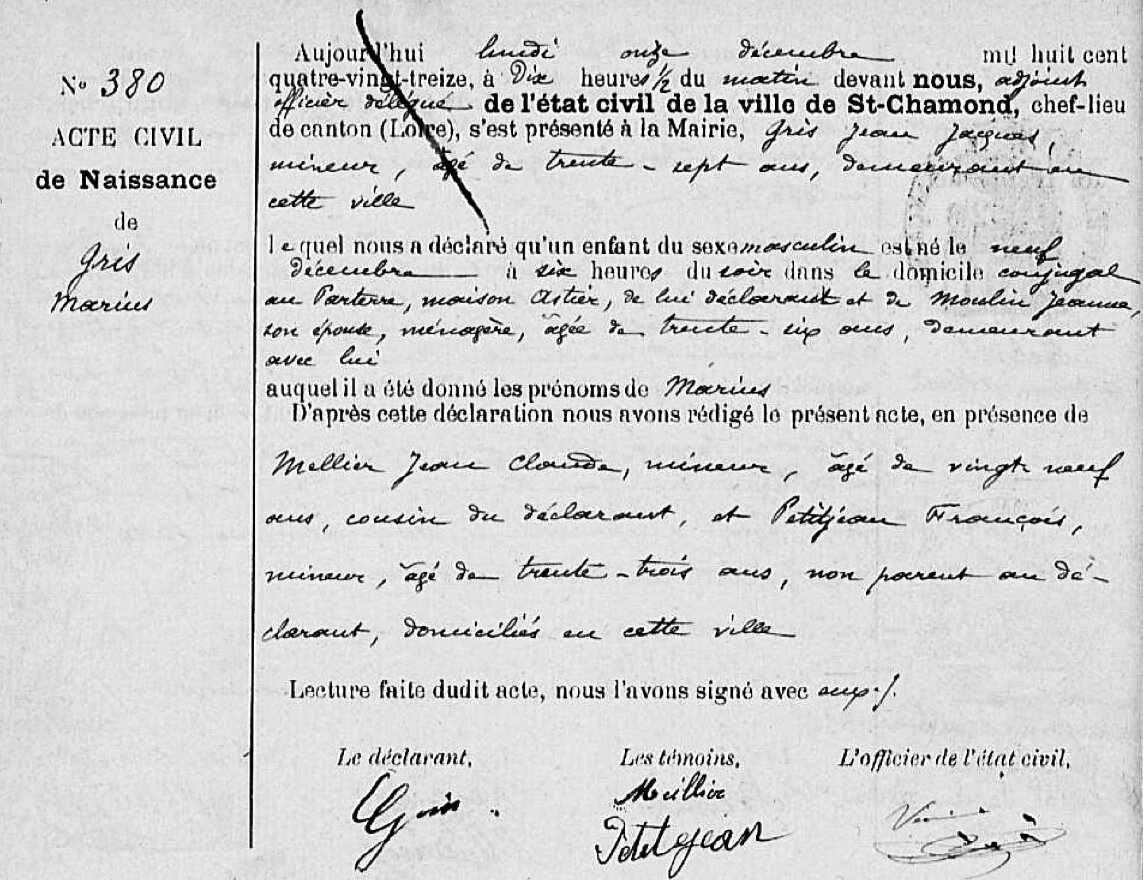 N° 380
ACTE CIVIL
de Naissance
de
Gris
Marius
Aujourd'hui lundi onze décembre mil huit cent
quatre-vingt-treize, à Dix heures ½ du matin devant nous, adjoint
officier délégué de l'état civil de la ville de St-Chamond, chef-lieu
de canton (Loire), s'est présenté à la Mairie, Gris Jean Jacques,
mineur, âgé de trente-sept ans, demeurant en
cette ville
lequel nous a déclaré qu'un enfant du sexe masculin est né le neuf
décembre à six heures du soir dans le domicile conjugal
au Parterre, maison Astier, de lui déclarant et de Moulin Jeanne,
son épouse, ménagère, âgée de trente-six ans, demeurant
avec lui
auquel il a été donné les prénoms de Marius
D'après cette déclaration nous avons rédigé le présent acte, en présence de
Mellier Jean Claude, mineur, âgé de vingt neuf
ans, cousin du déclarant, et Petitjean François,
mineur, âgé de trente-trois ans, non parent au dé-
clarant, domiciliés en cette ville
Lecture faite dudit acte, nous l'avons signé avec eux ./.
Le déclarant, Les témoins, L'officier de l'état civil,
Gris Mellier
Petitjean